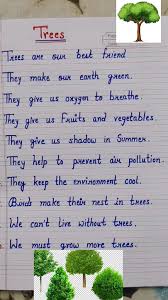 Trees
Trees are our best friend.
They make our earth green.
They give us oxygen to breathe.
They give us Fruits and vegetables.
They give us shadow in Summer.
They help to prevent air pollution.
They keep the environment cool.
Birds make their nest in trees.
We can't live without trees.
We must grow more trees.